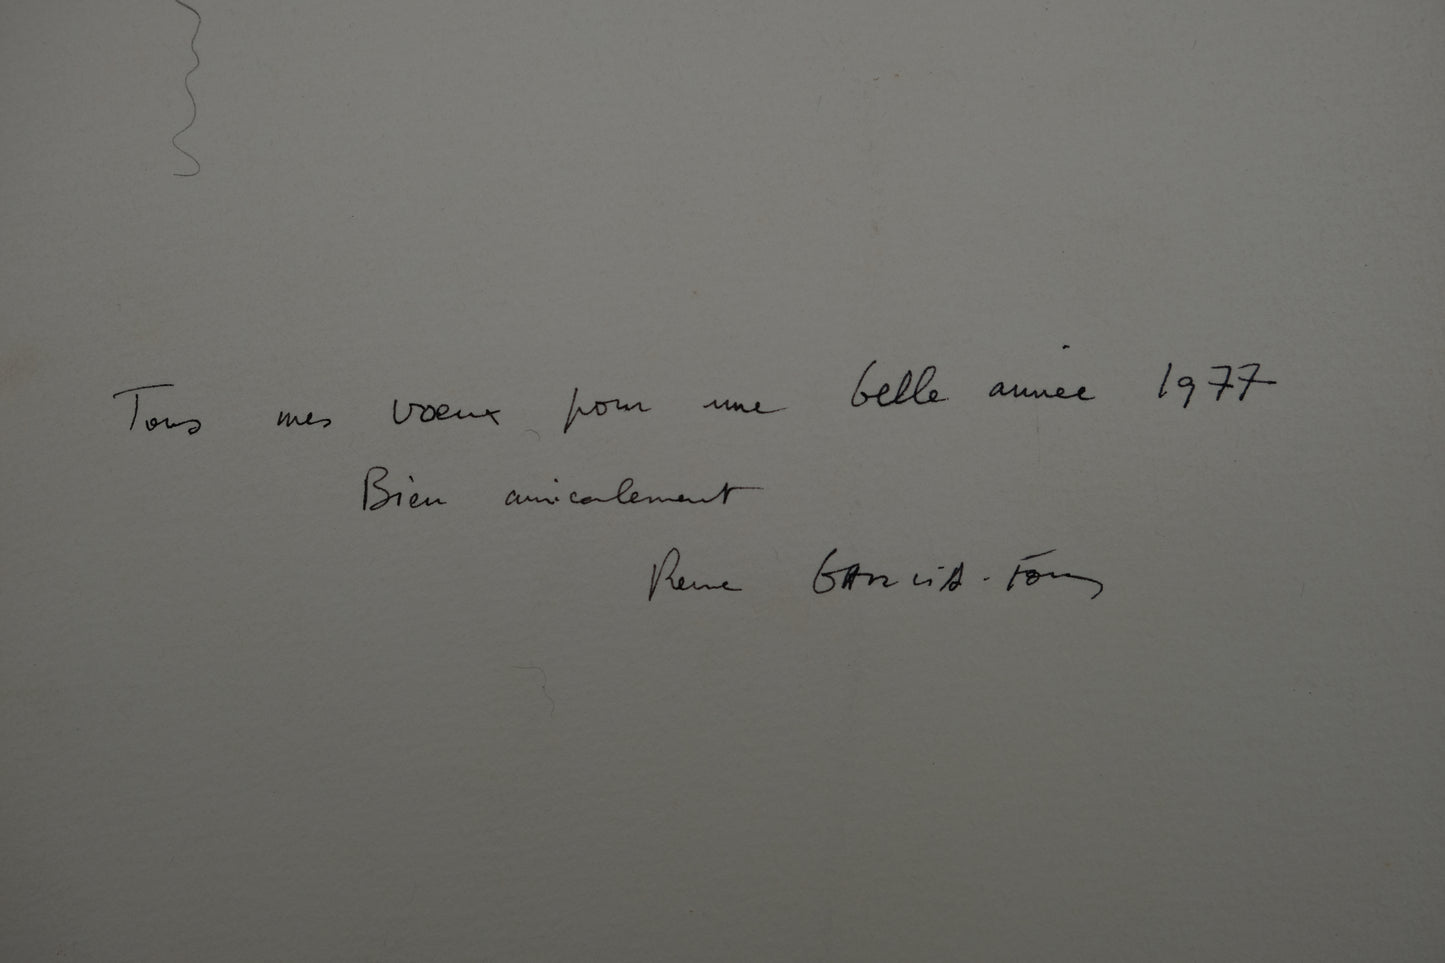 Tous mes voeux pour une belle année 1977
Bien amicalement
René GARCIA-